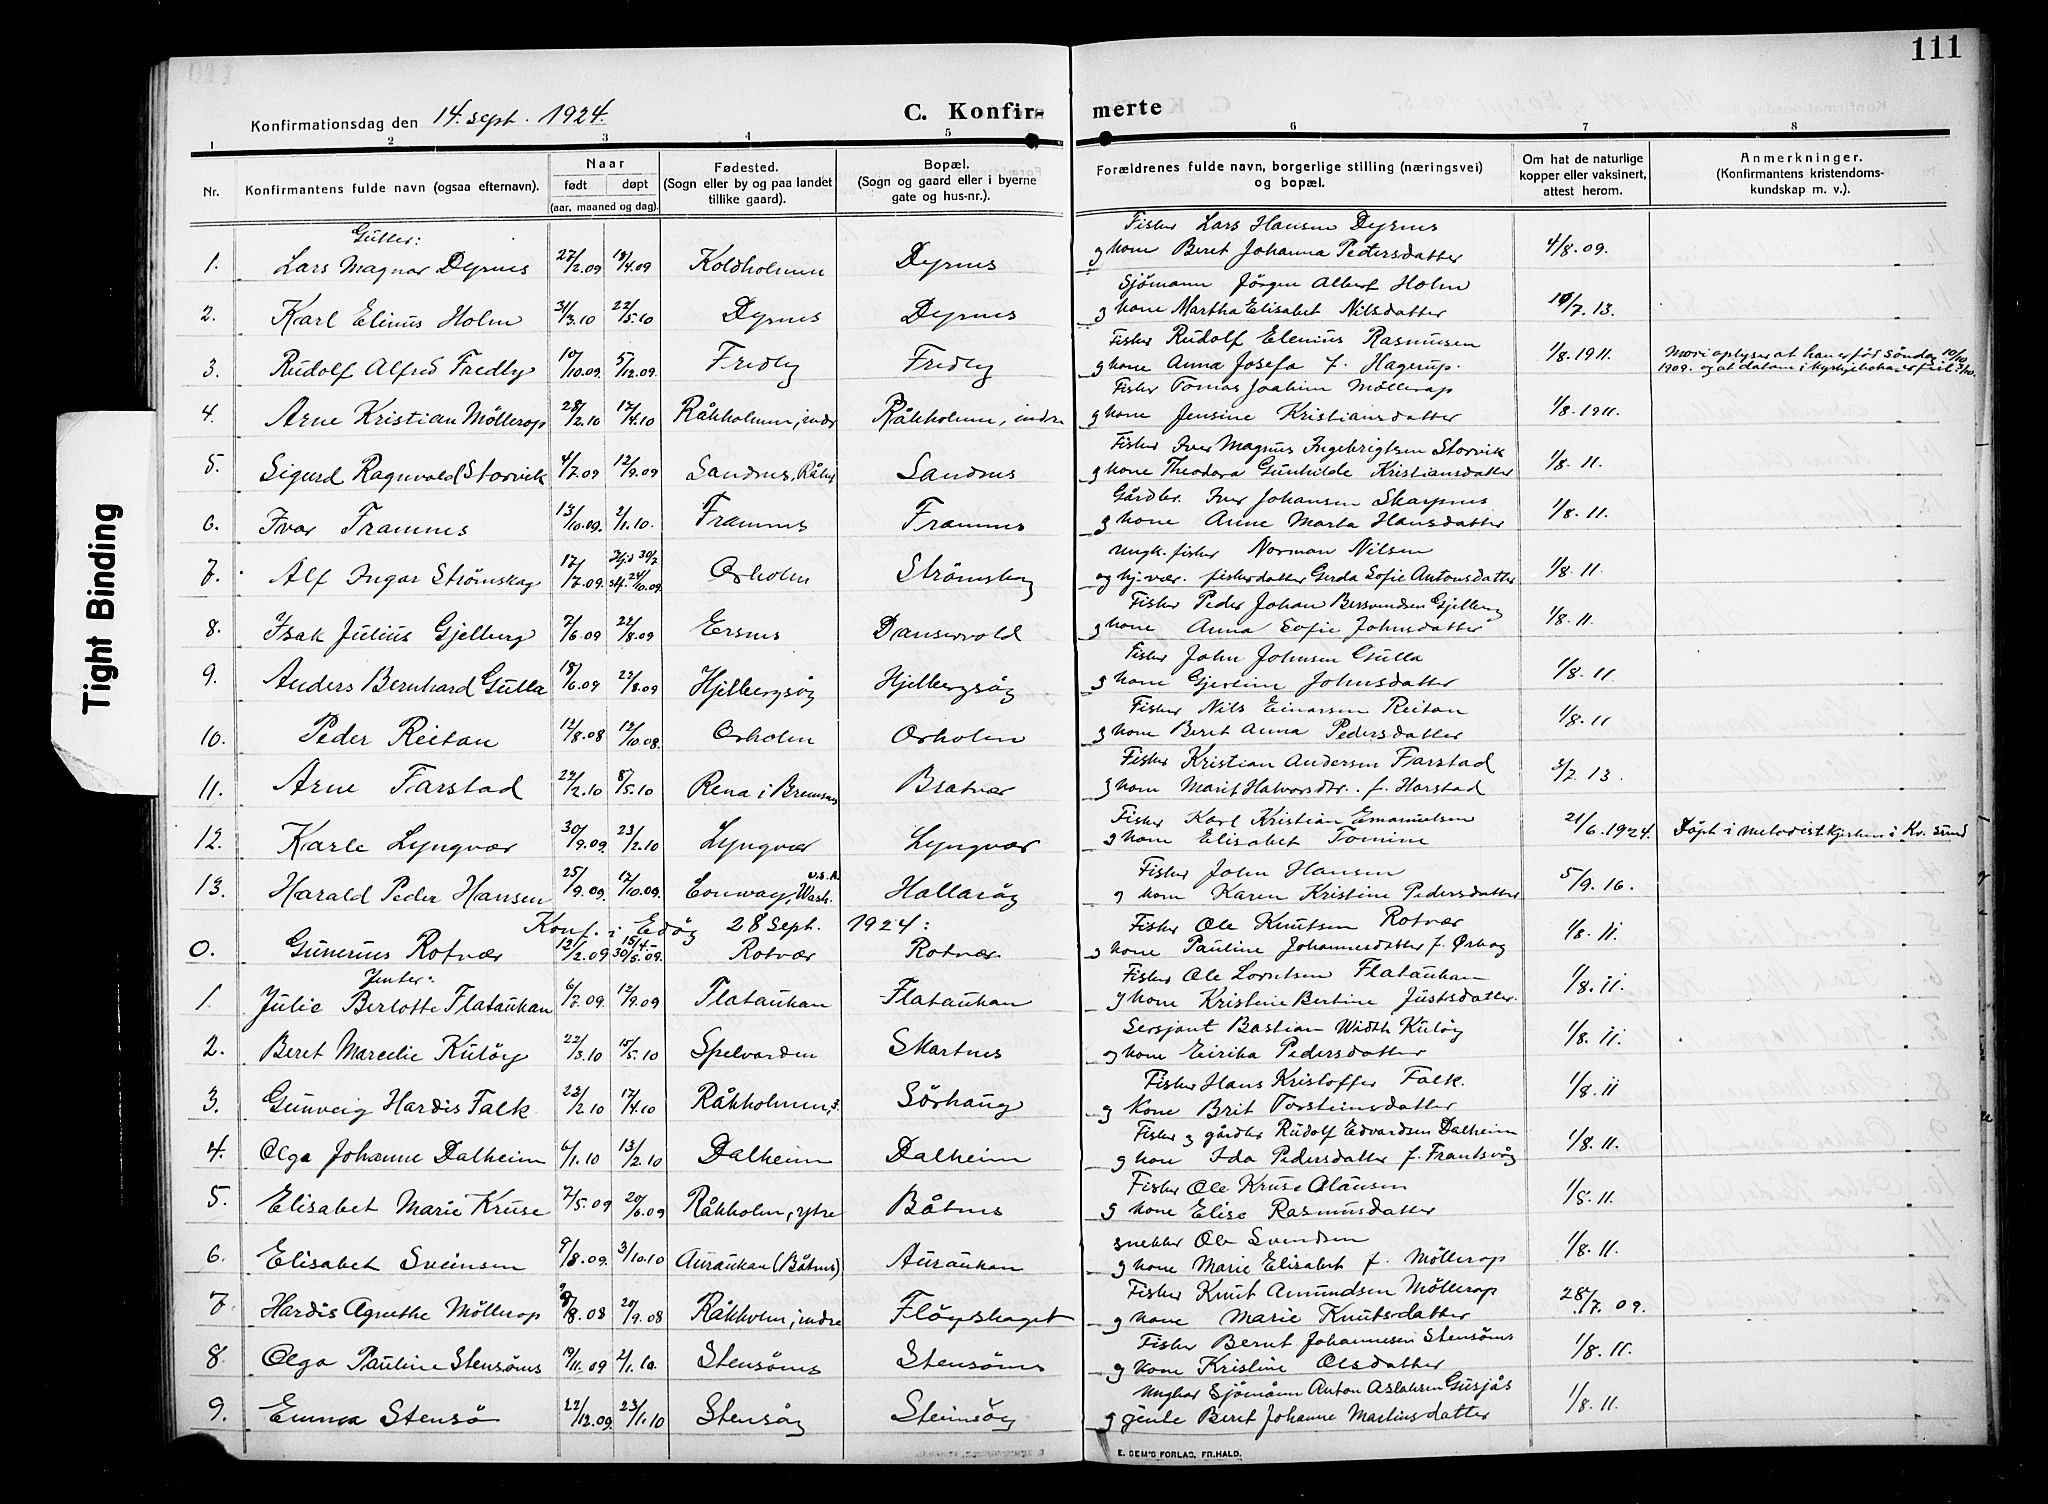 111
Konfirmationsdag den 14. sept. 1924.
C. Konfir- merte
1 2 3 4 5 6 7 8
Nr. Konfirmantens fulde navn (ogsaa efternavn). Naar født døpt (aar, maaned og dag). Fødested. (Sogn eller by og paa landet tillike gaard). Bopæl. (Sogn og gaard eller i byerne gate og hus-nr.). Forældrenes fulde navn, borgerlige stilling (næringsvei) og bopæl. Om hat de naturlige kopper eller vaksinert, attest herom. Anmerkninger. (Konfirmantens kristendoms- kundskap m. v.).
Gutter:
Fisker Lars Hansen Dyrnes
1. Lars Magnar Dyrnes 27/2.09 18/4.09 Koldholmen Dyrnes og kone Beret Johanna Pedersdatter 4/8.09.
Sjömann Jörgen Albert Holm
2. Karl Elinus Holm 31/3.10 22/5.10 Dyrnes Dyrnes og kone Martha Elisabet Nilsdatter 10/7.13.
Fisker Rudolf Elenius Rasmusen
3. Rudolf Alfred Fredly 10/10.09. 5/12.09. Fredly Fredly og kone Anna Josefa f. Hagerup. 1/8.1911. Mori oplyser at han er född söndag 10/10 1909. og at datum i kyrkjeboka er feil
Fisker Tomas Joakim Möllerop
4. Arne Kristian Möllerop 28/2.10 17/4.10 Råkholmen, indr Råkholmen, indre og kone Jensine Kristiansdatter 1/8.1911.
Fisker Iver Magnus Ingebrigtsen Storvik
5. Sigurd Ragnvald (Storvik 4/7.09 12/9.09 Sandnes, Råkv Sandnes og kone Theodora Gunhilde Kristiansdatter 1/8.11.
Gårdbr. Iver Johansen Skarpnes
6. Ivar Framnes 13/10.09. 2/1.10. Framnes Framnes og kone Anne Marta Hansdatter 1/8.11.
Ungk. fisker Norman Nilsen
7. Alf Ingar Strömskag 17/7.09. Hjd 30/7 st. 24/10.09. Orholm Strömskag og hj.vær. fiskerdatter Gerda Sofie Antonsdatter 1/8.11.
Fisker Peder Johan Berssvendsen Gjelberg
8. Isak Julius Gjelberg 7/6.09 22/8.09 Ersnes Danservold og kone Anna Sofie Johnsdatter 1/8.11.
Fisker John Johnsen Gulla
9. Anders Bernhard Gulla 18/6.09 22/8.09 Hjelbergsöy Hjelbergsöy og kone Gjertine Johnsdatter 1/8.11.
Fisker Nils Einarsen Reitan
10. Peder Reitan 12/8.08 12/10.08. Orholm Orholm og kone Beret Anna Pedersdatter 1/8.11
Fisker Kristian Andersen Farstad
11. Arne Farstad 22/2.10 8/5.10 Rena i Bremsnes Bratvær og kone Marit Halvorsdtr. f. Harstad 3/7.13.
Fisker Karl Kristian Emanuelsen
12. Karle Lyngvær 30/9.09. 23/2.10 Lyngvær Lyngvær og kone Elisabet Tomine 21/6.1924. Döpt i metodistkjirken i Kr.sund
Fisker John Hansen
13. Harald Peder Hansen 25/9.09. 17/10.09. Conway, Wash. U.S.A. Hallaröy og kone Karen Kristine Pedersdatter 5/9.16.
Konf. i Edöy 28 Sept. 1924:
Fisker Ole Knutsen Rotvær
0. Gunerius Rotvær 12/2.09 15/4.- 30/5.09. Rotvær Rotvær. og kone Pauline Johannesdatter f. Ørbog 1/8.11.
Jenter:
Fisker Ole Lorntsen Flataukan
1. Julie Berlotte Flataukan 6/7.09. 12/9.09 Flataukan Flataukan og kone Kristine Bertine Justsdatter. 1/8.11.
Sersjant Bastian Width Kulöy
2. Beret Marcelie Kulöy 22/3.10 15/5.10 Spelvarden Skartnes og kone Eirika Pedersdatter 1/8.11.
Fisker Hans Kristoffer Falk.
3. Gunveig Hardis Falk 23/2.10 17/4.10 Råkholmen, i. Sörhaug og Kone Brit Torsteinsdatter 1/8.11
Fisker og gårdbr Rudolf Edvardsen Dalheim
4. Olga Johanne Dalheim 6/1.10 13/2.10 Dalheim Dalheim og kone Ida Pedersdatter f. Frantsvåg 1/8.11.
Fisker Ole Kruse Olausen
5. Elisabet Marie Kruse 7/5.09 20/6.09 Råkholm, ytre Båtnes og kone Elise Rasmusdatter 1/8.11.
snekker Ole Svendsen
6. Elisabet Sveinsen 9/8.09. 3/10.10 Auraukan (Båtnes) Auraukan og kone Marie Elisabet f. Möllerop 1/8.11.
Fisker Knut Amundsen Möllerop
7. Hardis Agnethe Möllerop 9/8.08 20/9.08 Råkholm, indre Flöyskaget og kone Marie Knutsdatter 28/7.09.
Fisker Bernt Johannesen Stensönes
8. Olga Pauline Stensönes 19/11.09 2/1.10. Stensönes Stensönes og Kone Kristine Olsdatter 1/8.11.
Ungkar Sjömann Anton Aslaksen Gusjås
9. Emma Stensö 22/12.09. 23/1.10 Stensöy Steinsöy og jente Beret Johanne Martinsdatter 1/8.11.
E. SEM'S FORLAG, FR.HALD.
Tight Binding